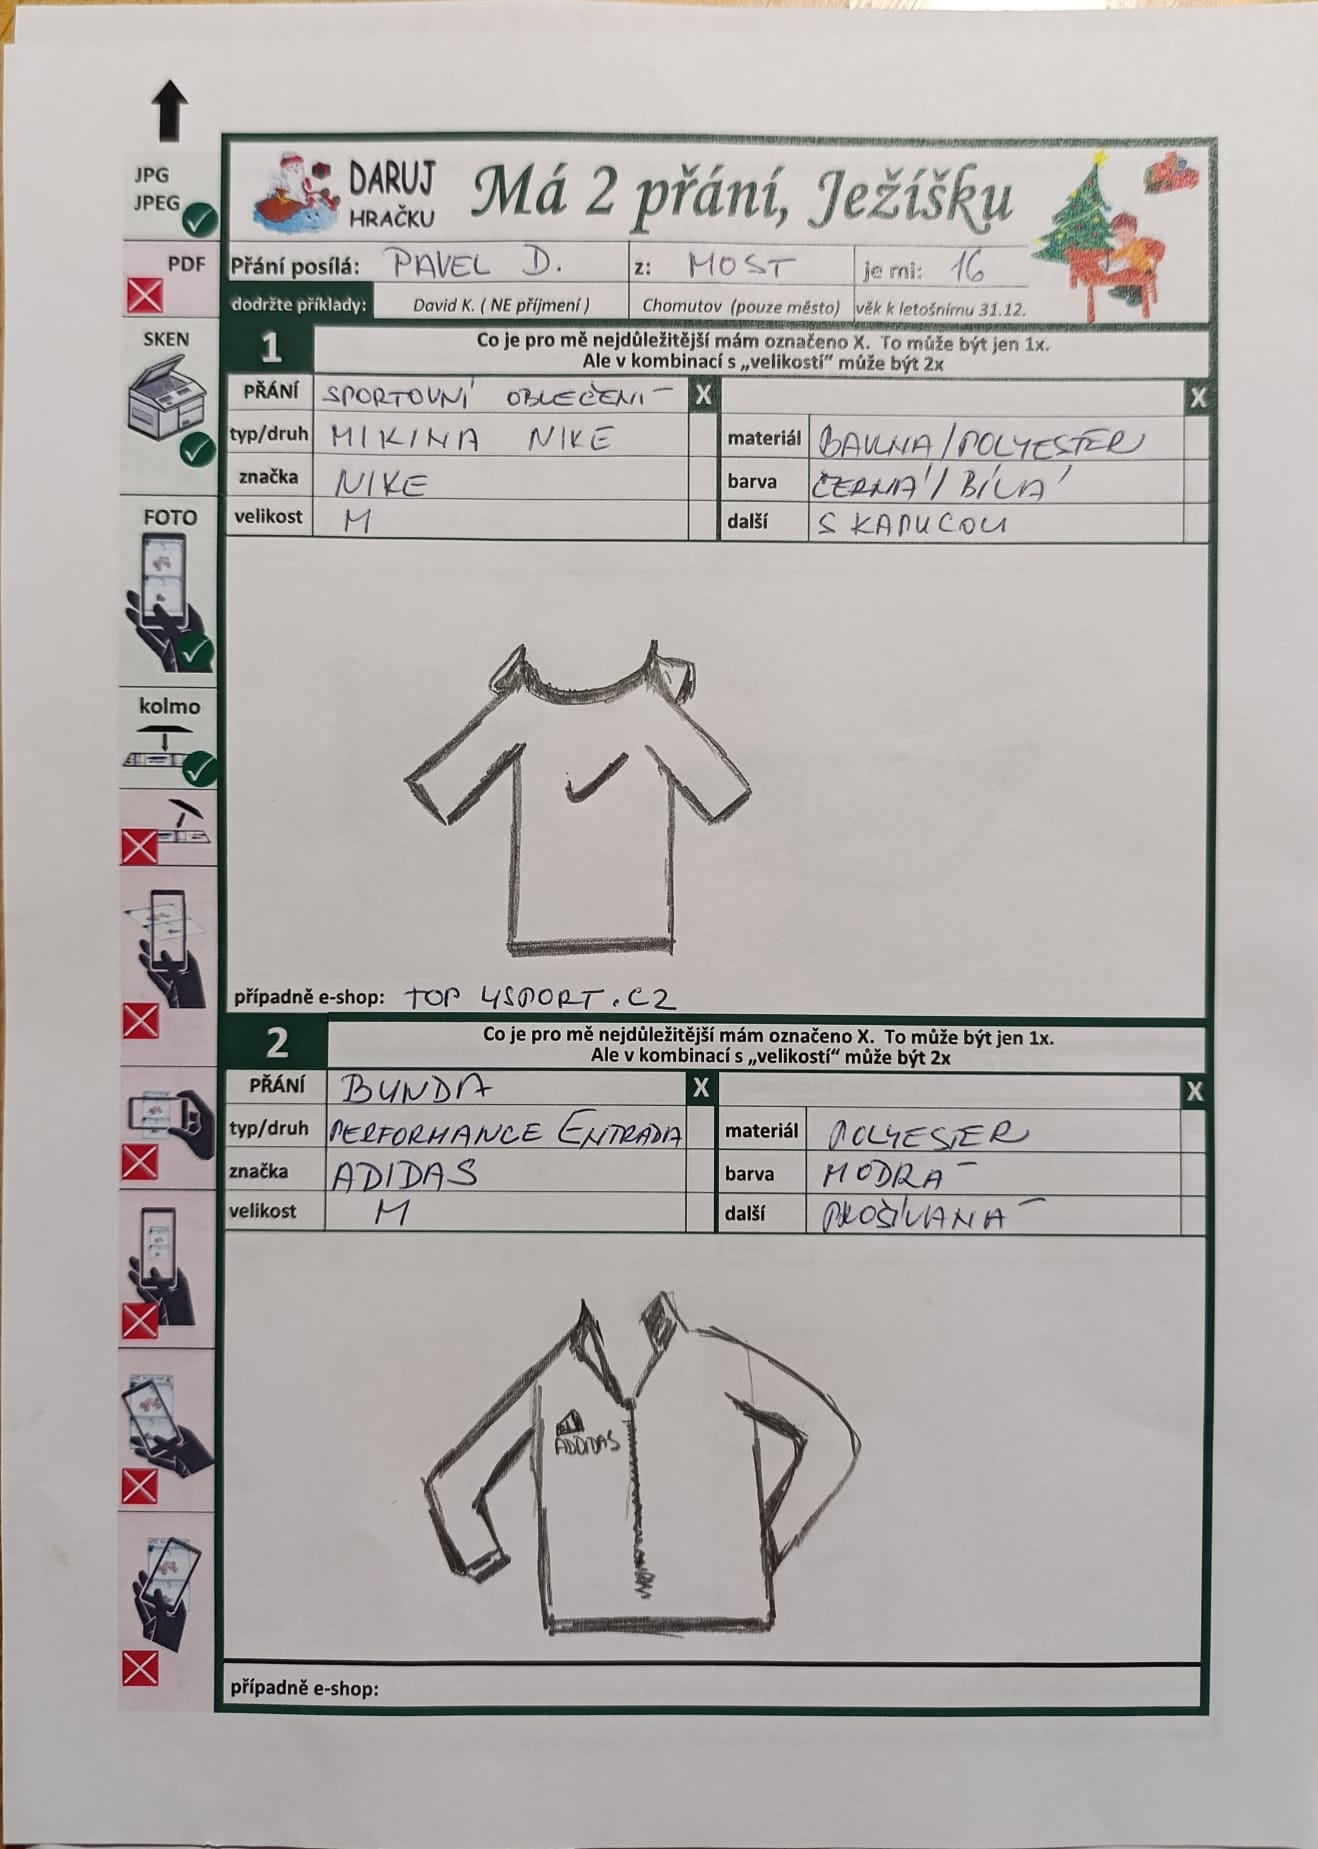 JPG
JPEG
PDF
SKEN
FOTO
kolmo
DARUJ
HRAČKU
Má 2 přání, Ježíšku
Přání posílá: PAVEL D. z: MOST je mi: 16
dodržte příklady: David K. ( NE příjmení ) Chomutov (pouze město) věk k letošnímu 31.12.
1 Co je pro mě nejdůležitější mám označeno X. To může být jen 1x.
Ale v kombinací s „velikostí“ může být 2x
PŘÁNÍ SPORTOVNÍ OBLEČENÍ X X
typ/druh MIKINA NIKE materiál BAVLNA/POLYESTER
značka NIKE barva ČERNÁ/BÍLÁ
velikost M další S KAPUCOU
případně e-shop: TOP 4SPORT.CZ
2 Co je pro mě nejdůležitější mám označeno X. To může být jen 1x.
Ale v kombinací s „velikostí“ může být 2x
PŘÁNÍ BUNDA X X
typ/druh PERFORMANCE ENTRADA materiál POLYESTER
značka ADIDAS barva MODRÁ
velikost M další PROŠÍVANÁ
ADIDAS
případně e-shop: